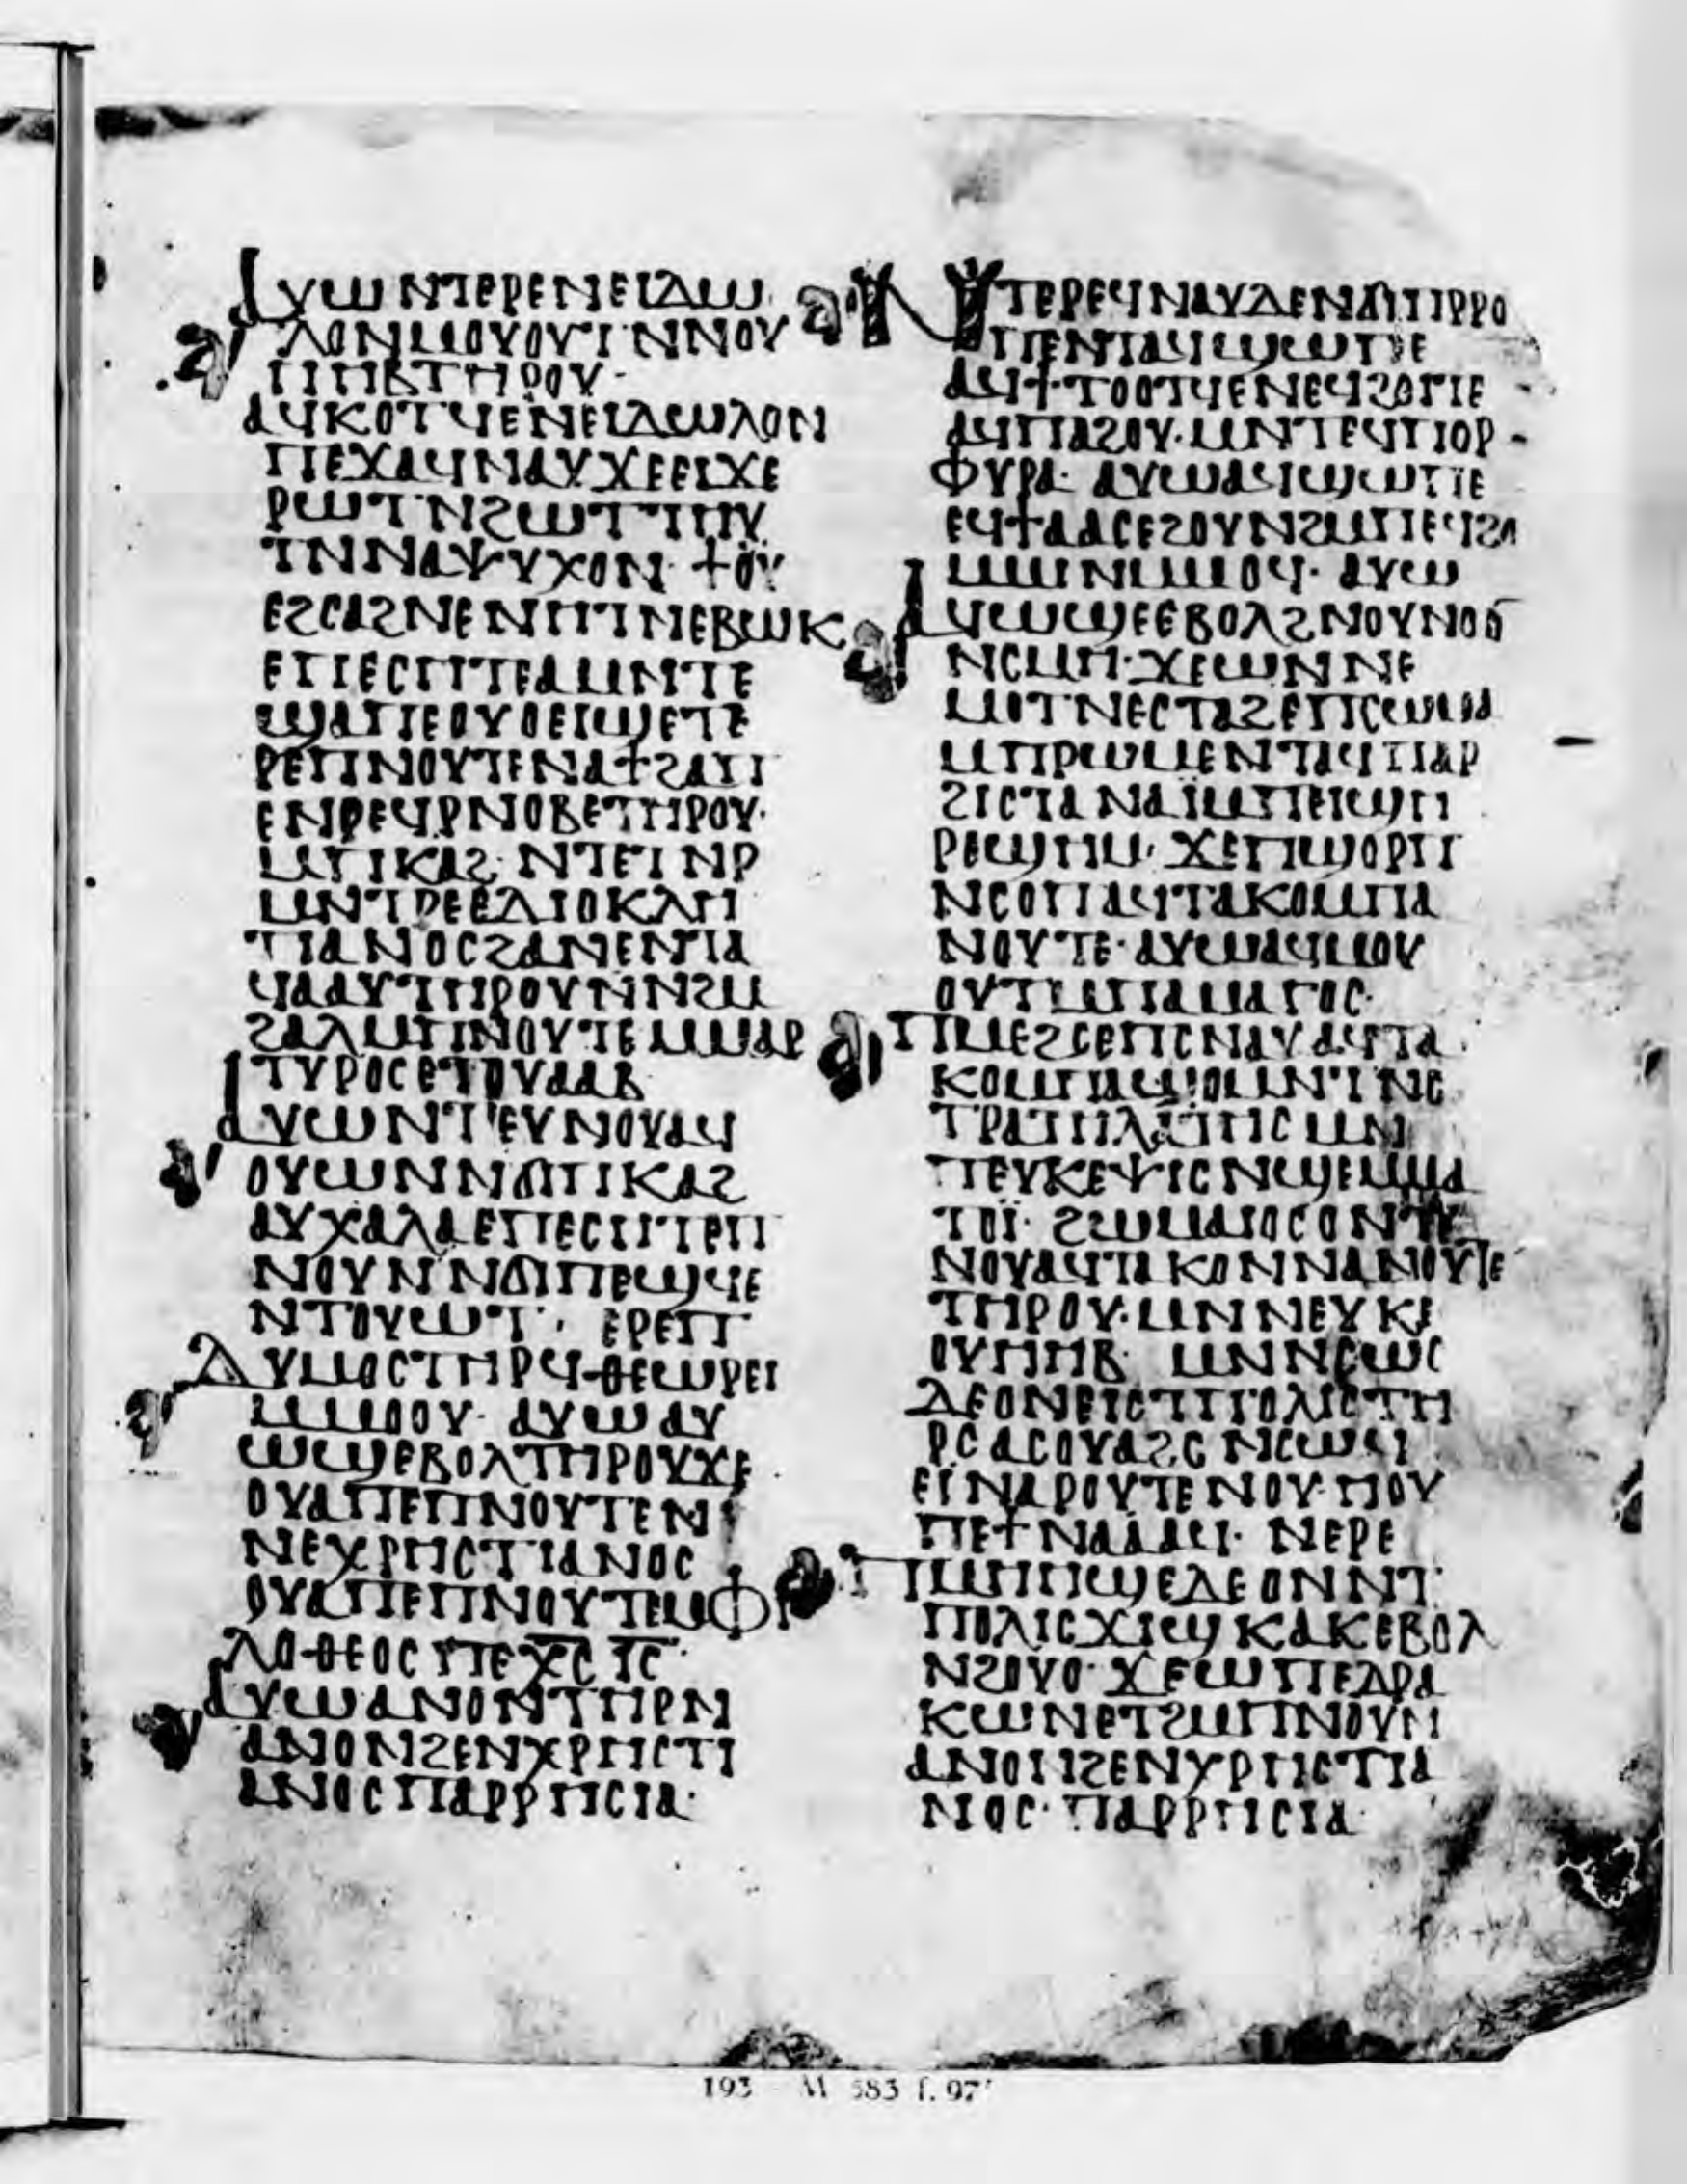 ⲁⲩⲱ ⲛⲧⲉⲣⲉⲛⲉⲓⲇⲱ
ⲗⲟⲛ ⲙⲟⲩⲟⲩⲧ ⲛⲛⲟⲩ
ⲏⲏⲃ ⲧⲏⲣⲟⲩ·
ⲁϥⲕⲟⲧϥ ⲉⲛⲉⲓⲇⲱⲗⲟⲛ
ⲡⲉϫⲁϥ ⲛⲁⲩ ϫⲉ ⲉⲓϫⲉ
ⲣⲱⲧⲛ ϩⲱⲧⲧⲏⲩ
ⲧⲛ ⲛⲁⲯⲩⲭⲟⲛ· ϯⲟⲩ
ⲉϩⲥⲁϩⲛⲉ ⲛⲏⲧⲛ ⲉⲃⲱⲕ
ⲉⲡⲉⲥⲏⲧ ⲉⲁⲙⲛⲧⲉ
ϣⲁⲡⲉⲟⲩⲟⲉⲓϣ ⲉⲧⲉ
ⲣⲉⲡⲛⲟⲩⲧⲉ ⲛⲁϯϩⲁⲡ
ⲉⲛⲣⲉϥⲣⲛⲟⲃⲉ ⲧⲏⲣⲟⲩ·
ⲙⲡⲕⲁϩ· ⲛⲧⲉⲓⲛⲣ
ⲙⲛⲧⲣⲉ ⲉⲇⲓⲟⲕⲗⲏ
ⲧⲓⲁⲛⲟⲥ ϩⲁⲛⲉⲛⲧⲁ
ϥⲁⲁⲩ ⲧⲏⲣⲟⲩ ⲛⲛϩⲙ
ϩⲁⲗ ⲙⲡⲛⲟⲩⲧⲉ ⲙⲙⲁⲣ
ⲧⲩⲣⲟⲥ ⲉⲧⲟⲩⲁⲁⲃ
ⲁⲩⲱ ⲛⲧⲉⲩⲛⲟⲩ ⲁϥ
ⲟⲩⲱⲛ ⲛϭⲓⲡⲕⲁϩ
ⲁⲩⲭⲁⲗⲁ ⲉⲡⲉⲥⲏⲧ ⲉⲡ
ⲛⲟⲩⲛ ⲛϭⲓⲡⲉϣϥⲉ
ⲛⲧⲟⲩⲱⲧ· ⲉⲣⲉⲡ
ⲇⲩⲙⲟⲥ ⲧⲏⲣϥ ⲑⲉⲱⲣⲉⲓ
ⲙⲙⲟⲟⲩ· ⲁⲩⲱ ⲁⲩ
ⲱϣ ⲉⲃⲟⲗ ⲧⲏⲣⲟⲩ ϫⲉ
ⲟⲩⲁ ⲡⲉ ⲡⲛⲟⲩⲧⲉ ⲛ
ⲛⲉⲭⲣⲏⲥⲧⲓⲁⲛⲟⲥ
ⲟⲩⲁ ⲡⲉ ⲡⲛⲟⲩⲧⲉ ⲙⲫⲓ
ⲗⲟⲑⲉⲟⲥ ⲡⲉⲭ̅ⲥ̅ ⲓ̅ⲥ̅·
ⲁⲩⲱ ⲁⲛⲟⲛ ⲧⲏⲣⲛ
ⲁⲛⲟⲛ ϩⲉⲛⲭⲣⲏⲥⲧⲓ
ⲁⲛⲟⲥ ⲡⲁⲣⲣⲏⲥⲓⲁ·
ⲛⲧⲉⲣⲉϥⲛⲁⲩ ⲇⲉ ⲛϭⲓⲡⲣⲣⲟ
ⲡⲉⲛⲧⲁϥϣⲱⲡⲉ
ⲁϥϯⲧⲟⲟⲧϥ ⲉⲛⲉϥϩⲟⲉⲓⲧⲉ
ⲁϥⲡⲁϩⲟⲩ· ⲙⲛⲧⲉϥⲡⲟⲣ
ⲫⲩⲣⲁ· ⲁⲩⲱ ⲁϥϣⲱⲡⲉ
ⲉϥϯⲁⲁⲥ ⲉϩⲟⲩⲛ ϩⲙⲡⲉϥϩⲟ
ⲙⲙⲓⲛ ⲙⲙⲟϥ· ⲁⲩⲱ
ⲁϥⲱϣ ⲉⲃⲟⲗ ϩⲛⲟⲩⲛⲟϭ
ⲛⲥⲙⲏ· ϫⲉ ⲱ ⲛⲛⲉ
ⲙⲟⲧⲛⲉⲥ ⲧⲁϩⲉⲡⲥⲱⲙⲁ
ⲙⲡⲣⲱⲙⲉ ⲛⲧⲁϥⲡⲁⲣ
ϩⲓⲥⲧⲁ ⲛⲁⲓ ⲙⲡⲉⲓϣⲏ
ⲣⲉϣⲏⲙ· ϫⲉ ⲡϣⲟⲣⲡ
ⲛⲥⲟⲡ ⲁϥⲧⲁⲕⲟ ⲙⲡⲁ
ⲛⲟⲩⲧⲉ· ⲁⲩⲱ ⲁϥⲙⲟⲩ
ⲟⲩⲧ ⲙⲡⲁⲙⲁⲅⲟⲥ·
ⲡⲙⲉϩⲥⲉⲡⲥⲛⲁⲩ ⲁϥⲧⲁ
ⲕⲟ ⲙⲡⲁϥⲓⲟⲙⲛⲧ ⲛⲥ
ⲧⲣⲁⲧⲏⲗⲁⲧⲏⲥ ⲙⲛ
ⲡⲉⲩⲕⲉⲯⲓⲥ ⲛϣⲉ ⲙⲙⲁ
ⲧⲟⲓ· ϩⲱⲙⲁⲓⲟⲥ ⲟⲛ ⲧⲉ
ⲛⲟⲩ ⲁϥⲧⲁⲕⲟ ⲛⲛⲁⲛⲟⲩⲧⲉ
ⲧⲏⲣⲟⲩ· ⲙⲛ ⲛⲉⲩⲕⲉ
ⲟⲩⲏⲏⲃ· ⲙⲛⲛⲥⲱⲥ
ⲇⲉ ⲟⲛ ⲉⲓⲥ ⲧⲡⲟⲗⲓⲥ ⲧⲏ
ⲣⲥ ⲁⲥⲟⲩⲁϩⲥ ⲛⲥⲱϥ
ⲉⲓⲛⲁⲣⲟⲩ ⲧⲉⲛⲟⲩ· ⲏ ⲟⲩ
ⲡⲉϯⲛⲁⲁⲁϥ· ⲛⲉⲣⲉ
ⲡⲙⲏⲏϣⲉ ⲇⲉ ⲟⲛ ⲛⲧ
ⲡⲟⲗⲓⲥ ϫⲓϣⲕⲁⲕ ⲉⲃⲟⲗ
ⲛϩⲟⲩⲟ· ϫⲉ ⲱ ⲡⲉⲇⲣⲁ
ⲕⲱⲛ ⲉⲧϩⲙⲡⲛⲟⲩⲛ
ⲁⲛⲟⲛ ϩⲉⲛⲭⲣⲏⲥⲧⲓⲁ
ⲛⲟⲥ· ⲡⲁⲣⲣⲏⲥⲓⲁ·
193 M 583 f. 97ʳ